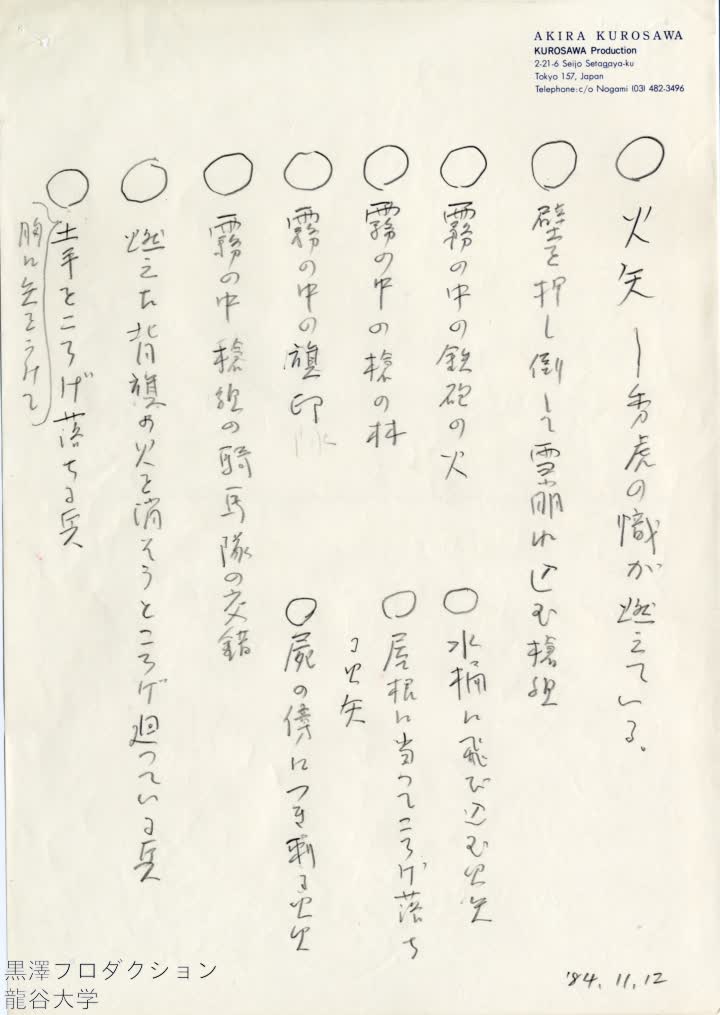 AKIRA KUROSAWA
KUROSAWA Production
2-21-6 Seijo Setagaya-ku
Tokyo 157, Japan
Telephone:c/o Nogami (03) 482-3496
○ 火矢 ― 秀虎の幟が燃えている。
○ 壁を押し倒して雪崩れ込む槍組
○ 霧の中の鉄砲の火
○ 水桶に飛び込む火矢
○ 霧の中の槍の林
○ 屋根に当ってころげ落ち
る火矢
○ 霧の中の旗印
○ 屍の傍につき刺る火矢
○ 霧の中 槍組の騎馬隊の交錯
○ 燃えた背旗の火を消そうところげ廻っている兵
○ 土手をころげ落ちる兵
胸に矢をうけて
'84.11.12
黒澤プロダクション
龍谷大学